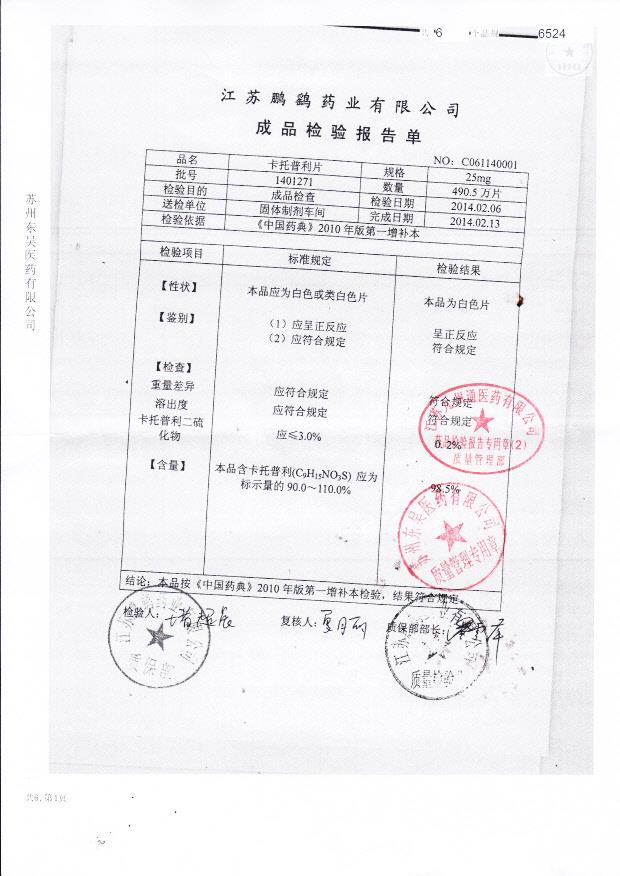 共 6 个品规 6524
江苏鹏鹞药业有限公司
成品检验报告单
NO：C061140001
品名 卡托普利片 规格 25mg
批号 1401271 数量 490.5 万片
检验目的 成品检查 检验日期 2014.02.06
送检单位 固体制剂车间 完成日期 2014.02.13
检验依据 《中国药典》2010 年版第一增补本
检验项目 标准规定 检验结果
【性状】 本品应为白色或类白色片 本品为白色片
【鉴别】 （1）应呈正反应 呈正反应
（2）应符合规定 符合规定
【检查】
重量差异 应符合规定 符合规定
溶出度 应符合规定 符合规定
卡托普利二硫
化物 应≤3.0% 0.2%
【含量】 本品含卡托普利(C₉H₁₅NO₃S) 应为
标示量的 90.0～110.0% 98.5%
结论：本品按《中国药典》2010 年版第一增补本检验，结果符合规定
检验人： 复核人：夏月丽 质保部部长：
江苏九州通医药有限公司
药品检验报告专用章(2)
质量管理部
苏州东吴医药有限公司
质量管理专用章
质保部
质量检验
苏州东吴医药有限公司
共6, 第1页